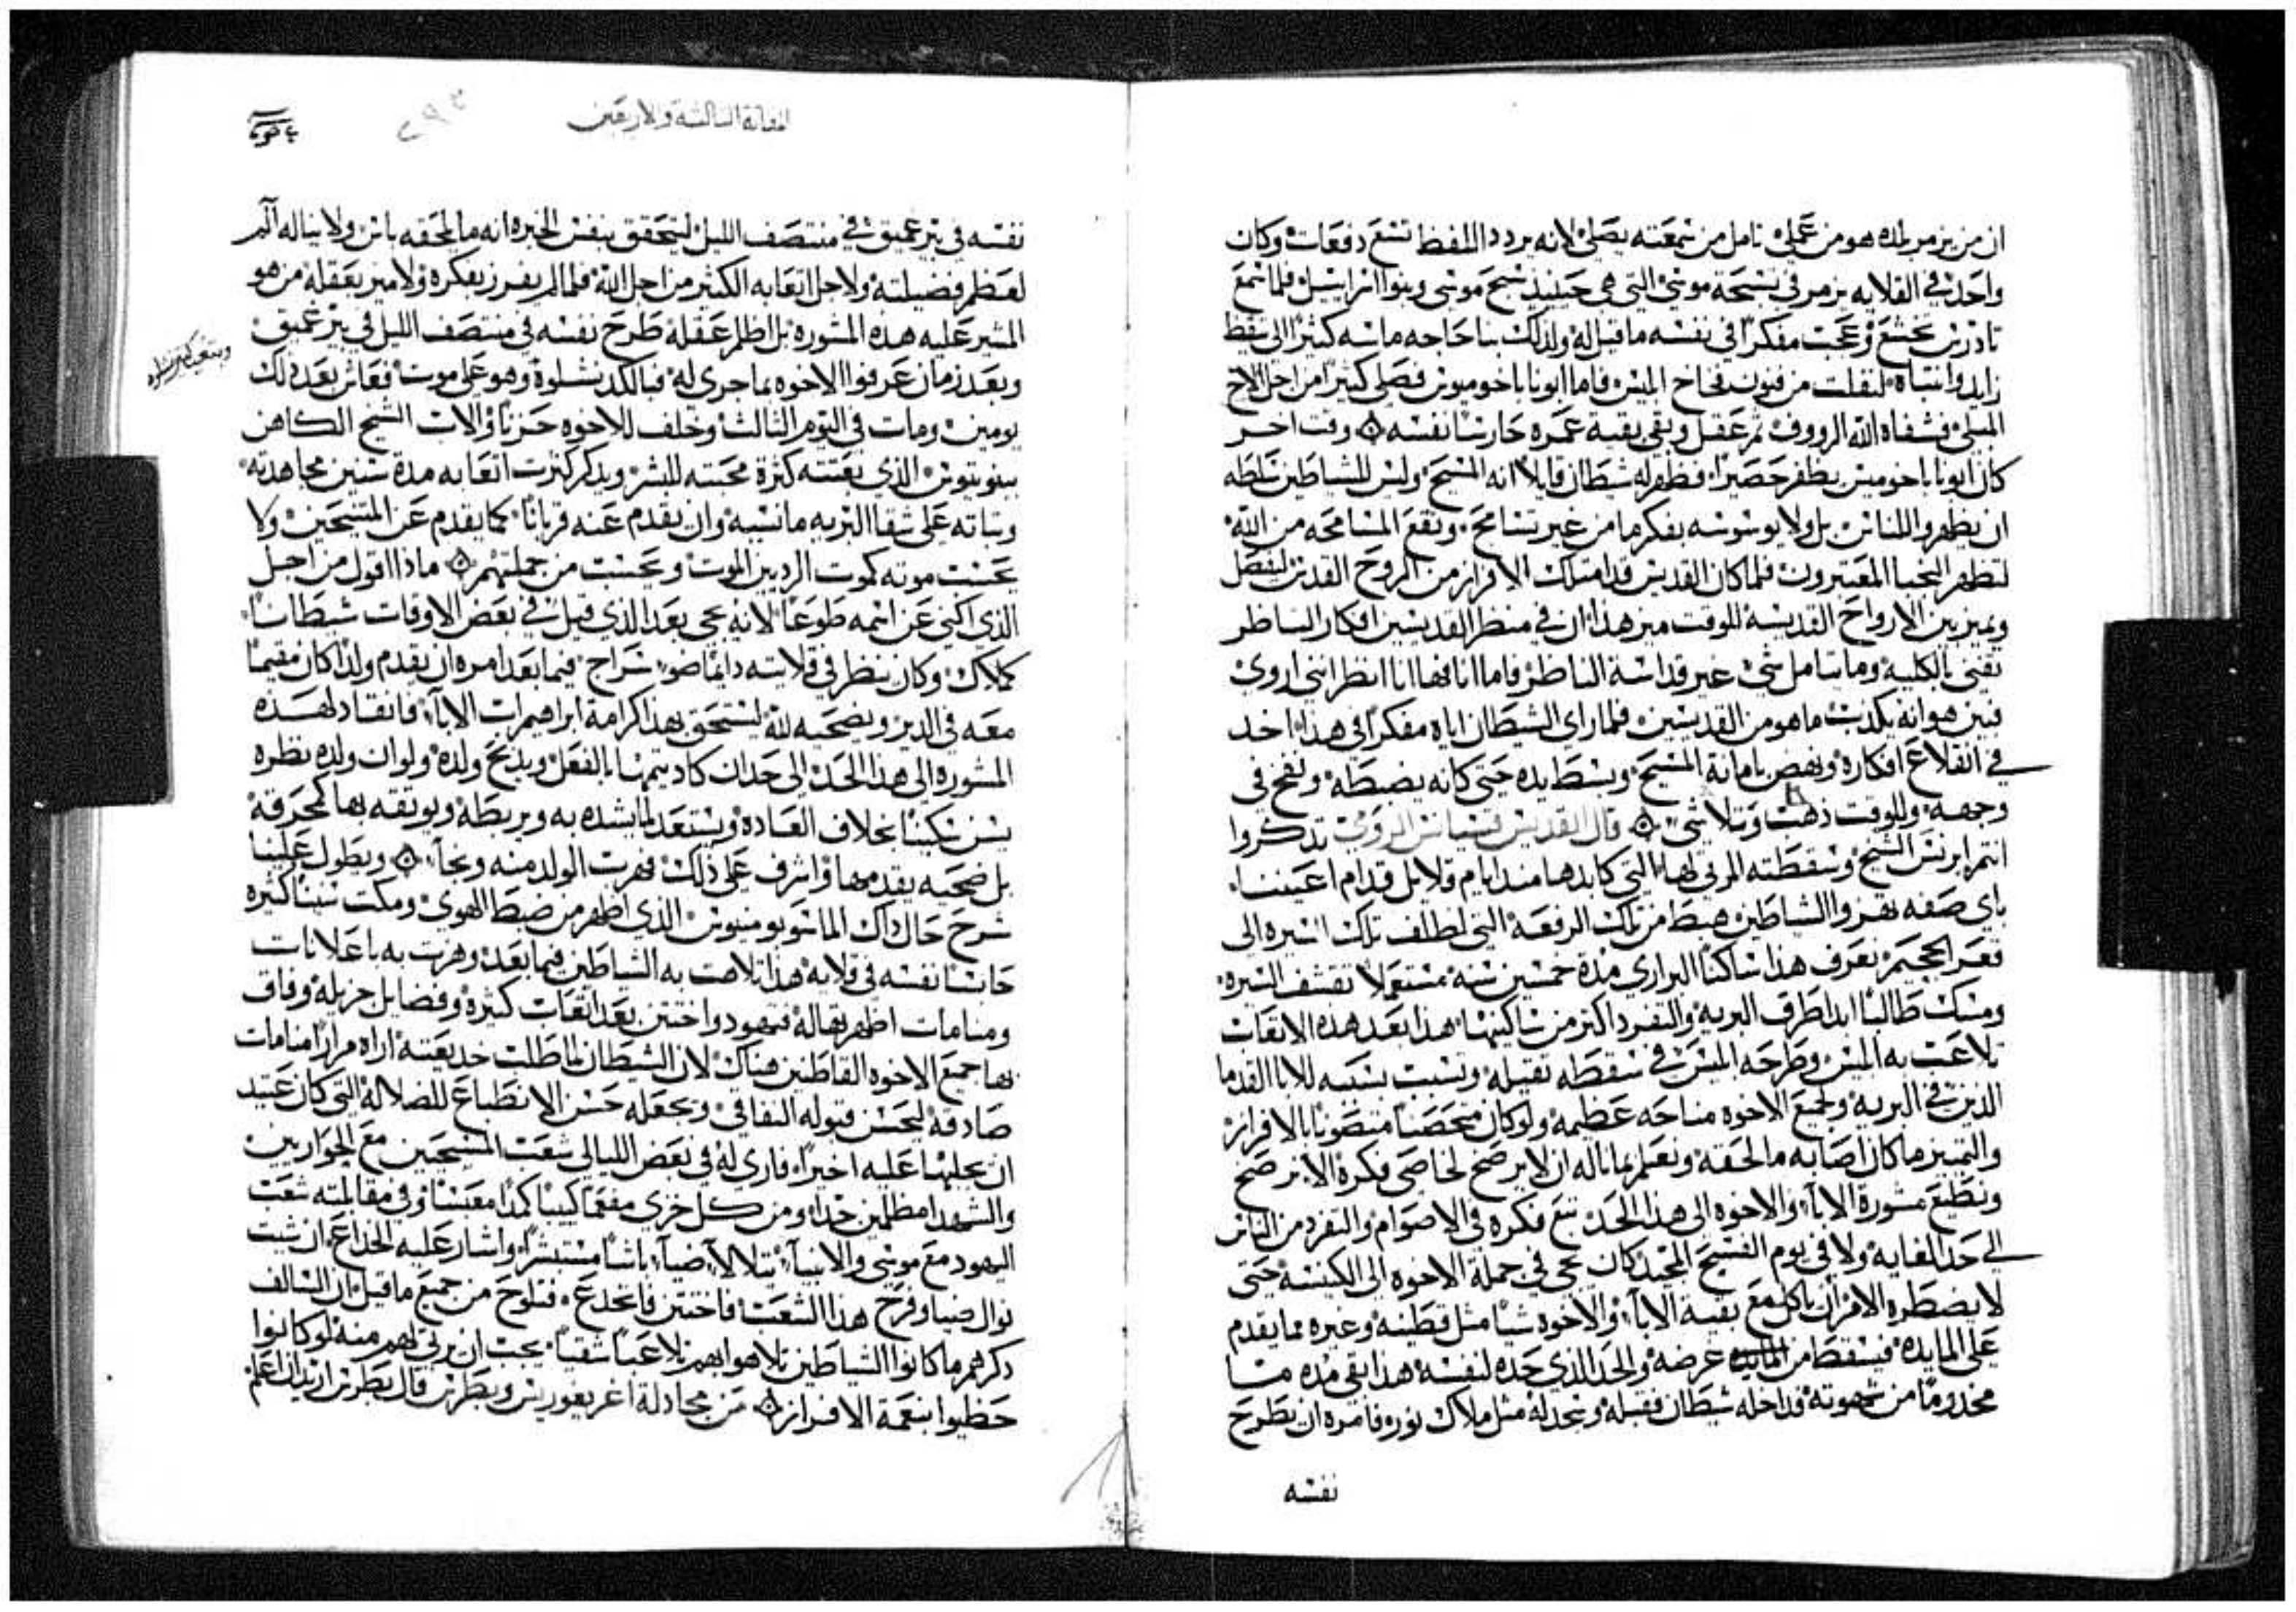 ان من يزمر بلده هو من عملي تامل من سمعته يصلي لانه يردد اللفظ تسع دفعات وكان
واحد في القلايه يزمر في تسبحة موسى التي هي حينيد سبح موسى وبنوا اسراييل فلما سمع
تادرس تخشع وعجب مفكرا في نفسه ما قيل له ولذلك بنا حاجه ماسه كثيرا الى تيقظ
زايد وانتباه لنفلت من فنون فخاخ ابليس فاما ابونا باخوميوس فصلى كثيرا من اجل الاخ
المبلي فشفاه الله الرووف ثم عقل وبقي بقية عمره حارسا نفسه وقت اخر
كان ابونا باخوميس يظفر حصيرا فظهر له شيطان قايلا انه المسيح وليس للشياطين سلطه
ان يظهروا للناس بل ولا يوسوسه بفكر ما من غير تسامح وتقع المسامحه من الله
لتظهر النجبا المعتبرون فلما كان القديس قد امتلك الافراز من الروح القدس ليفصل
ويميز بين الارواح القديسه للوقت ميز هذا ان في منظر القديسين افكار الناظر
تفنى بالكليه وما يتامل شي غير قداسة الناظر فاما انا فها انا انظر انني اروي
فبين هو انه يكدب ما هو من القديسين فلما راى الشيطان اياه مفكرا في هذا اخد
في انقلاع افكاره ونهض بامانة المسيح وبسط يده حتى كانه يضبطه ونفخ في
وجهه وللوقت ذهب وتلاشى قال القديس قسيانس الرومي تدكروا
انتم ابرنس الشيخ وسقطته المرثي لها التي كابدها مند ايام قلايل قدام اعيننا
باي صفه تهزوا الشياطين هبط من تلك الرفعة التي لطلف تلك السيره الى
قعر الجحيم نعرف هذا ساكنا البراري مدة خمسين سنه مستعملا تقشف السيره
ومسك طالبا ابدا طرف البريه والتفرد اكثر من ساكنيها هذا بعد هده الاتعاب
تلاعب به ابليس وطرحه ابليس في سقطه ثقيله وتسبب بسببه للابا القدما
الدين في البريه ولجميع الاخوه مناحه عظيمه ولو كان متحصنا متصونا بالافراز
والتمييز ما كان اصابه ما لحقه ونعلم بما ناله ان لا يرضخ لخاصي فكره الا يرضخ
ونطيع مشورة الابا والاخوه الى هذا الحد تبع فكره في الاصوام والتفرد من الناس
الى حد الغايه ولا في يوم الفسح المجيد كان يجي في جملة الاخوه الى الكنيسه حتى
لا يضطره الامر ان ياكل مع بقية الابا والاخوه شيا مثل قطنيه وغيره مما يقدم
على المايده فيسقط من المايده غرضه والحد الذي حده لنفسه هذا بقي مده ما
مخدوما من شهوته قد اخله شيطان فقبله وسجد له مثل ملاك نور فامره ان يطرح
نفسه
المقالة الثالثة والاربعين
نفسه في بير عميق في منتصف الليل ليتحقق بنفس الخبره انه ما يلحقه باس ولا يناله الم
لعظم فضيلته ولاجل اتعابه الكثير من اجل الله فلما لم يفرز بفكره ولا ميز بعقله من هو
المشير عليه هده المشوره بل اظلم عقله طرح نفسه في منتصف الليل في بير عميق
وبعد زمان عرفوا الاخوه بما جرى له فبالكد نشلوه وهو على موت فعاش بعد ذلك
يومين ومات في اليوم الثالث وخلف للاخوه حزنا والاب الشيخ الكاهن
بينوتيوس الذي بعتته كثرة محبته للبشر ويدكر كثرت اتعابه مدة سنين مجاهدته
وثباته على شقا البريه ما نسبه وان يقدم عنه قربانا كما يقدم عن المتنيحين ولا
يحسب موته كموت الرديين الموت ويحسب من جملتهم ماذا اقول من اجل
الذي اكني عن اسمه طوعا لانه يجي بعد الذي قبل في بعض الاوقات شيطانا
كملاك وكان ينظر في قلايته دايما ضو سراج فيما بعد امره ان يقدم ولدا كان مقيما
معه في الدير ويضحيه لله ليستحق بهذا كرامة ابراهيم راس الابا فانقاد لهده
المشوره الى هذا الحد الى حد ان كاد يتمها بالفعل ويدبح ولده ولو ان ولده نظره
يسن سكينا بخلاف العاده ويستعد لما يشده به ويربطه ويوثقه بها كمحرقة
بل ضحيه يقدمها واشرف على ذلك فهرب الولد منه ونجا ويطول علينا
شرح حال داك المانتوبومنيوس الذي اظهر من ضبط الهوى ومكت سنينا كثيره
حابسا نفسه في قلايه هذا تلاهت به الشياطين فيما بعد وهزت به باعلانات
ومنامات اظهرتها له فتهود واختتن بعد اتعاب كثيره وفضايل جزيله وفاق
بها جميع الاخوه القاطنين هناك لان الشيطان لما طلب خديعته اراه مرارا منامات
صادقة ليحسن قبوله النفاقي ويجعله حسن الانطباع للضلاله التي كان عتيد
ان يجلبها عليه اخيرا فارى له في بعض الليالي شعب المسيحيين مع الحواريين
والشهدا مظلمين جدا ومن كل خزي مفعما كييبا كمدا معبسا وفي مقابلته شعب
اليهود مع موسى والانبيا يتلالا ضيا باشا مستبشرا واشار عليه الخداع ان شيت
نوال ضيا وفرح هذا الشعب فاختتن فانخدع فتلوح من جميع ما قيل ان السالف
دكرهم ما كانوا الشياطين تلاهوا بهم تلاعبا شقيا يجب ان يرثى لهم منه لو كانوا
حظيوا بنعمة الافراز من مجادلة اغريغوريس وبطرس قال بطرس اريد ان اعلم